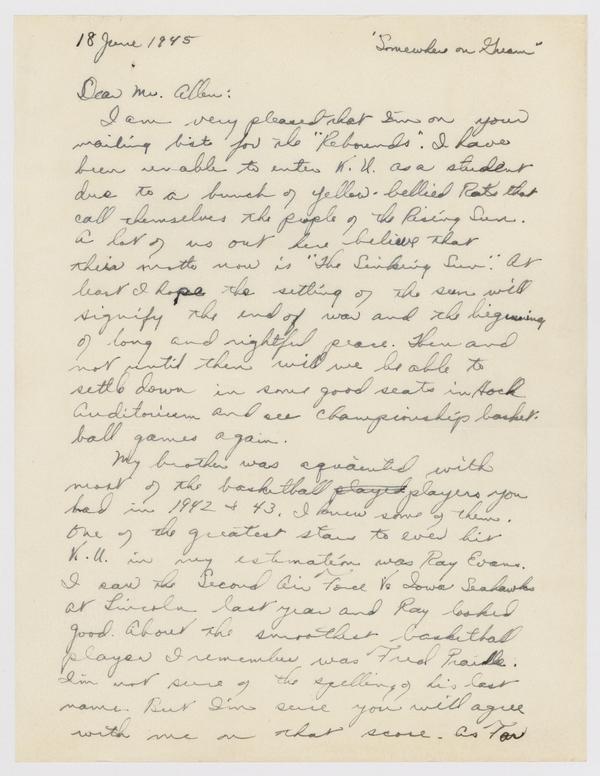 18 June 1945
"Somewhere on Guam"
Dear Mr. Allen:
I am very pleased that I'm on your
mailing list for the "Rebounds". I have
been unable to enter K.U. as a student
due to a bunch of yellow-bellied Rats that
call themselves the people of the Rising Sun.
A lot of us out here believe that
their motto now is "The Sinking Sun". At
least I hope the setting of the sun will
signify the end of war and the beginning
of long and rightful peace. Then and
not until then will we be able to
settle down in some good seats in Hoch
Auditorium and see championship basket-
ball games again.
My brother was aquainted with
most of the basketball played players you
had in 1942 & 43. I knew some of them.
One of the greatest stars to ever hit
K.U. in my estimation was Ray Evans.
I saw the Second Air Force Vs Iowa Seahawks
at Lincoln last year and Ray looked
good. About the smoothest basketball
player I remember was Fred Praidle.
I'm not sure of the spelling of his last
name. But I'm sure you will agree
with me on that score. As For